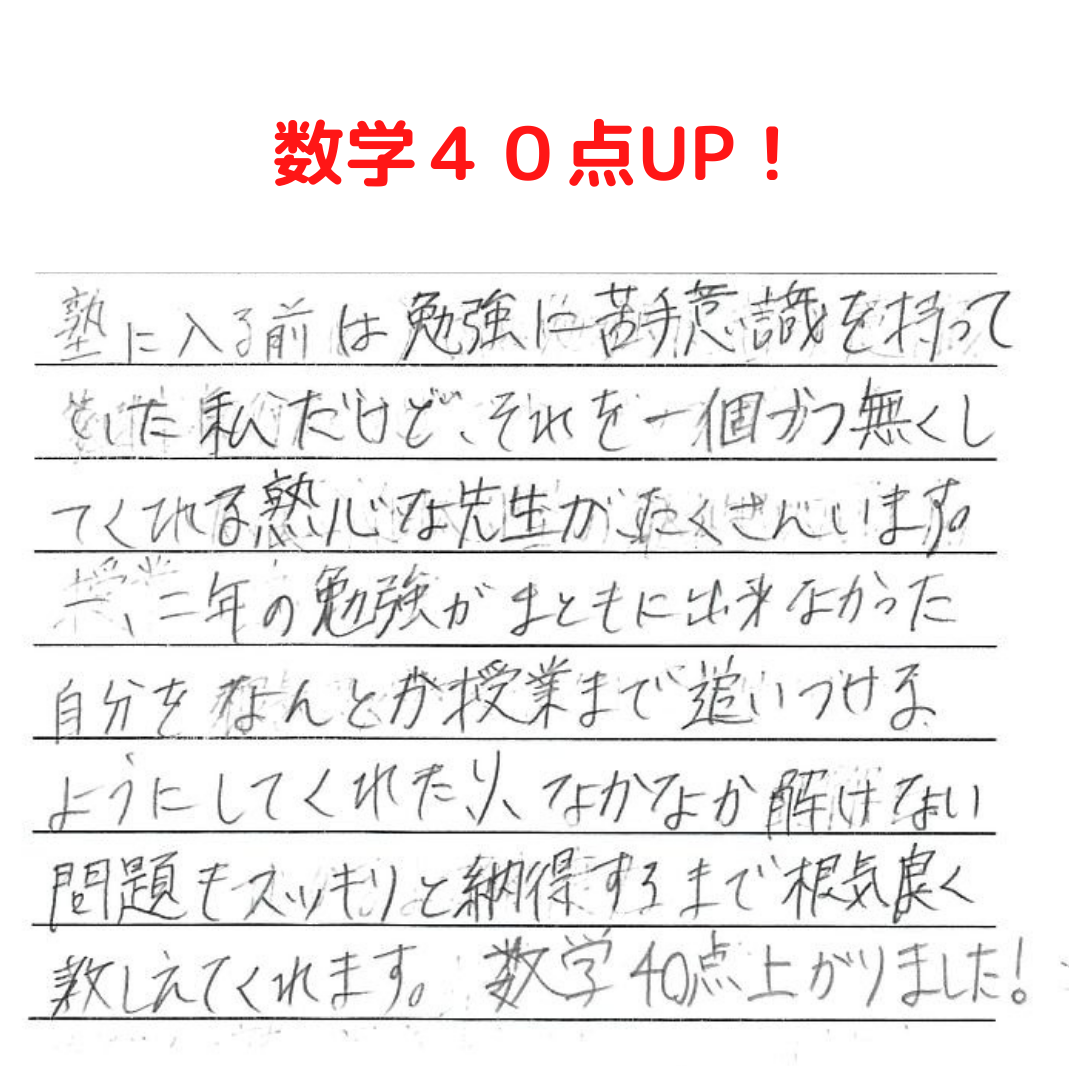 数学４０点UP！
塾に入る前は勉強に苦手意識を持って
いた私だけど、それを一個ずつ無くし
てくれる熱心な先生がたくさんいます。
一、二年の勉強がまともに出来なかった
自分をなんとか授業まで追いつける
ようにしてくれたり、なかなか解けない
問題もスッキリと納得するまで根気良く
教しえてくれます。数学40点上がりました！